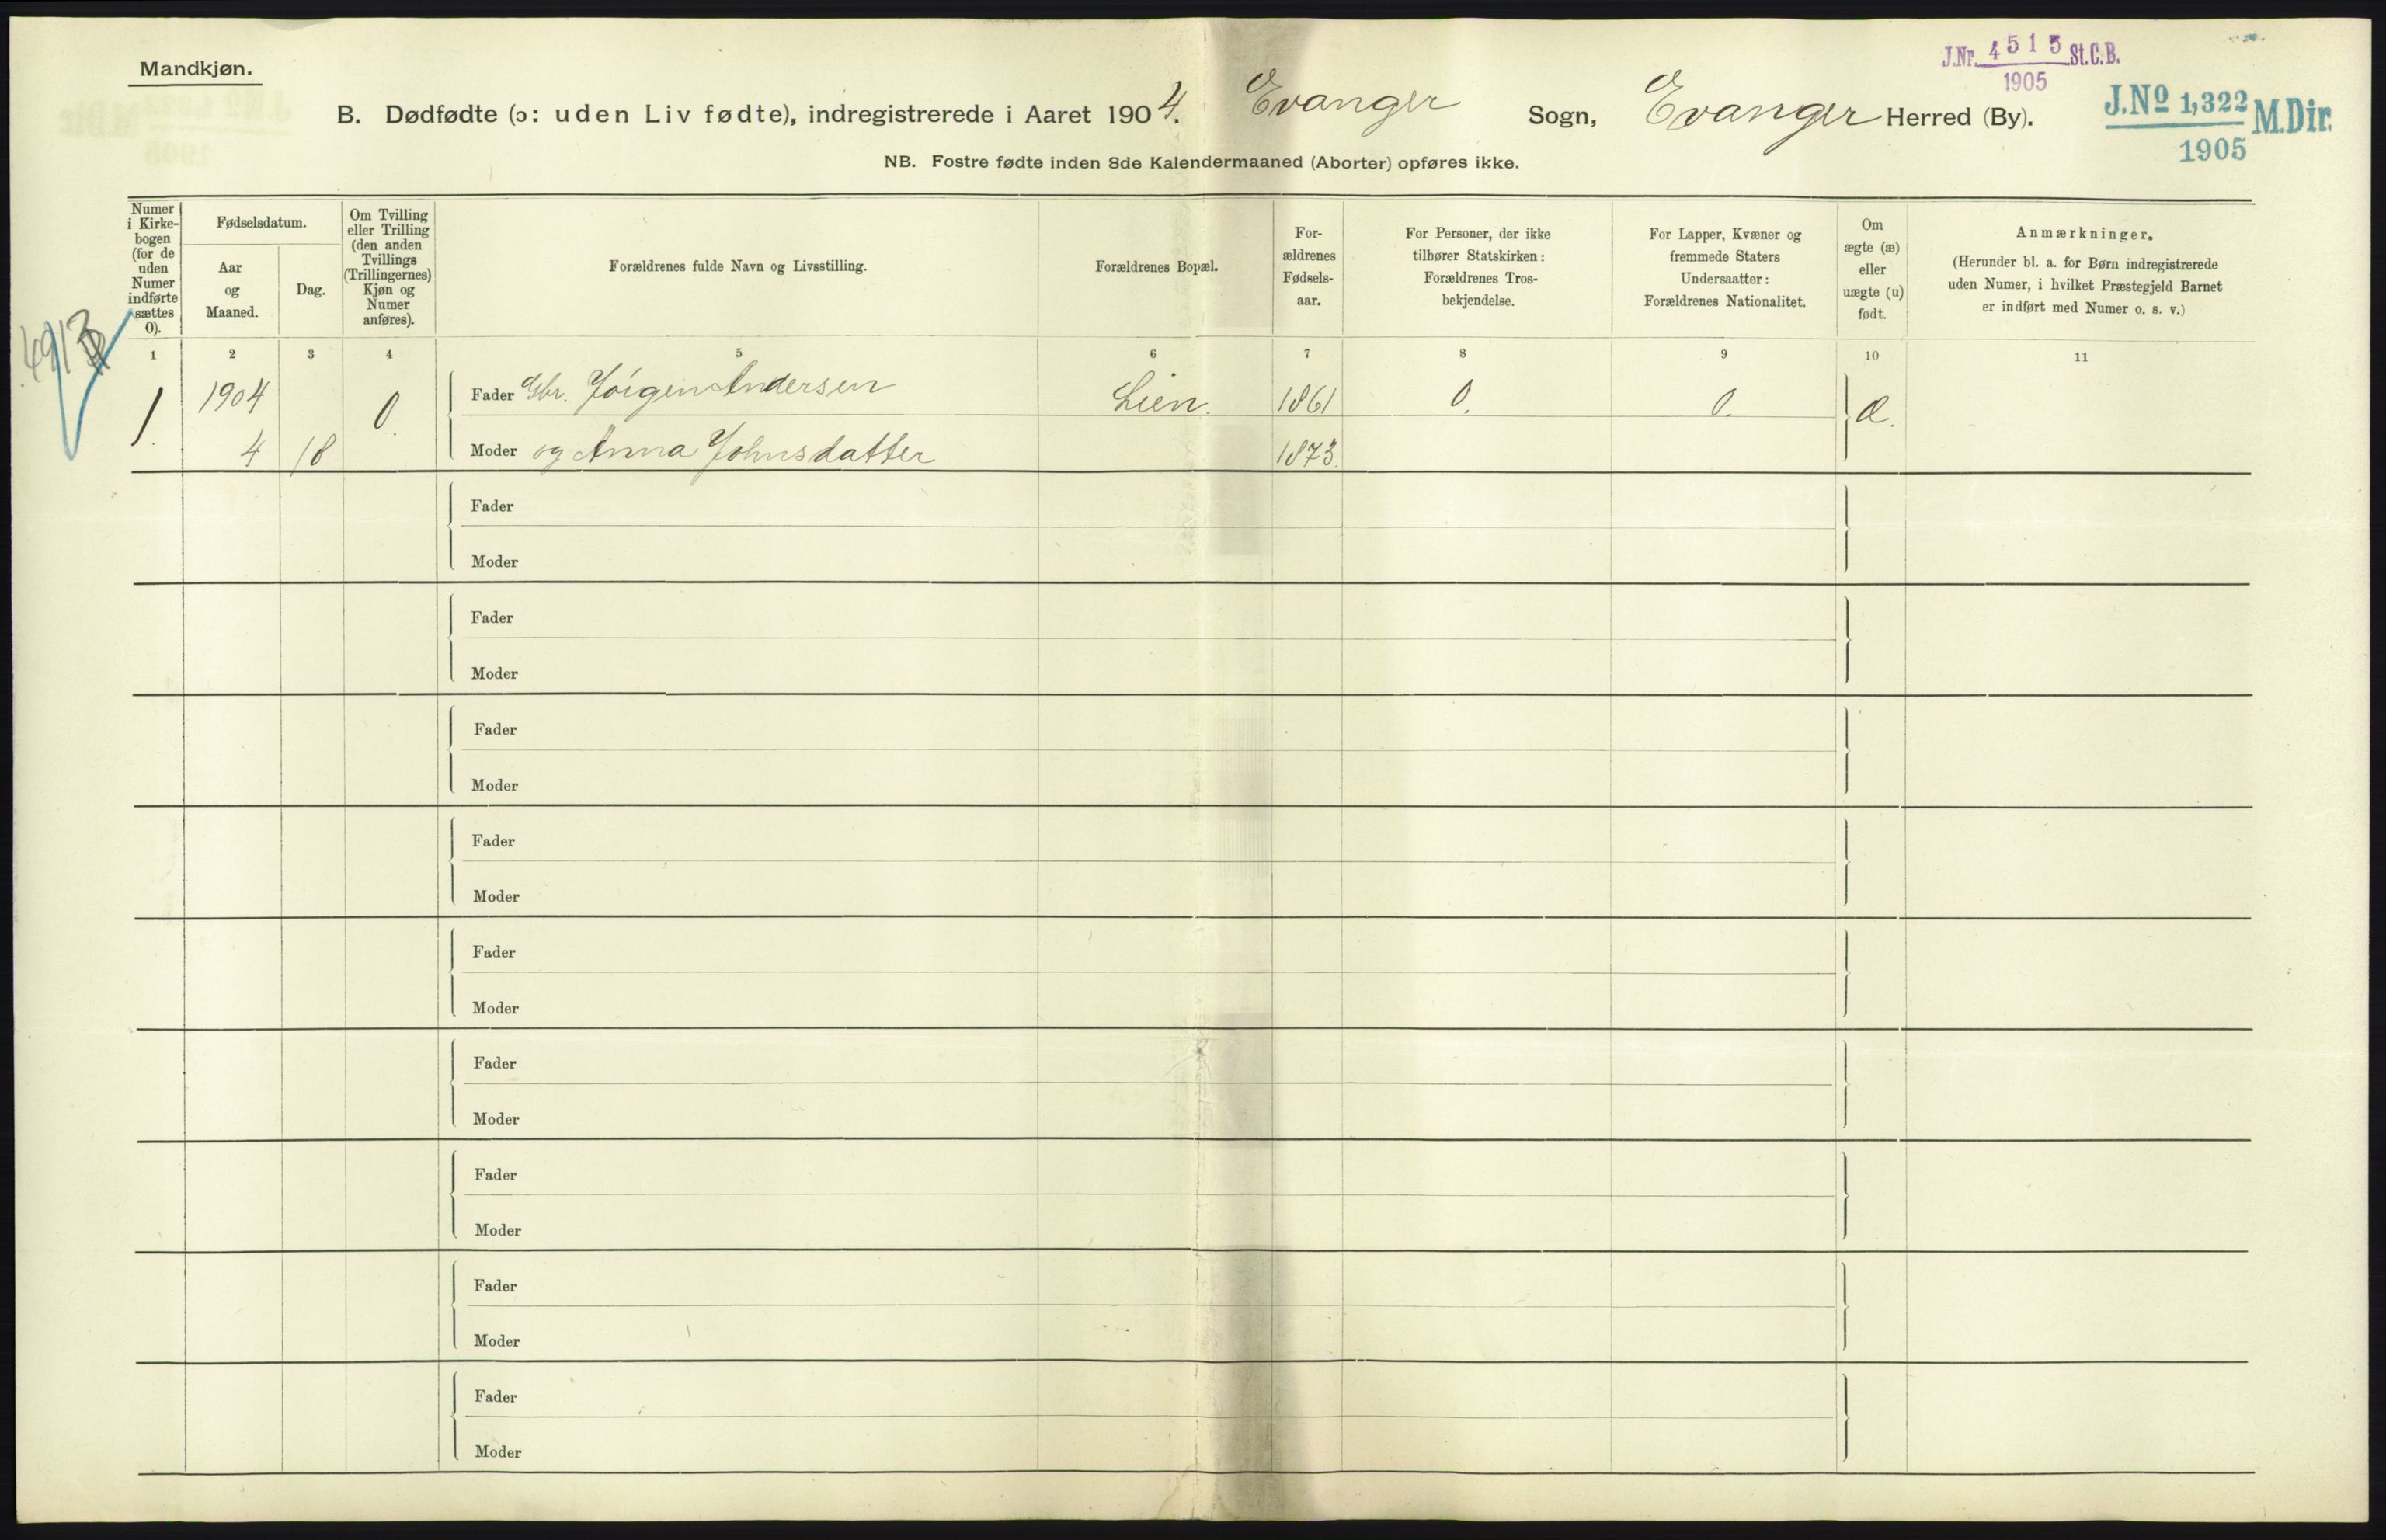 Mandkjøn.
J.Nr. 4515 St.C.B.
1905
B. Dødfødte (ɔ: uden Liv fødte), indregistrerede i Aaret 1904. Evanger Sogn, Evanger Herred (By).
J.No 1,322 M.Dir.
1905
NB. Fostre fødte inden 8de Kalendermaaned (Aborter) opføres ikke.
Numer
i Kirke-
bogen
(for de
uden
Numer
indførte
sættes
0).
Fødselsdatum.
Aar
og
Maaned.
Dag.
Om Tvilling
eller Trilling
(den anden
Tvillings
(Trillingernes)
Kjøn og
Numer
anføres).
Forældrenes fulde Navn og Livsstilling.
Forældrenes Bopæl.
For-
ældrenes
Fødsels-
aar.
For Personer, der ikke
tilhører Statskirken:
Forældrenes Tros-
bekjendelse.
For Lapper, Kvæner og
fremmede Staters
Undersaatter:
Forældrenes Nationalitet.
Om
ægte (æ)
eller
uægte (u)
født.
Anmærkninger.
(Herunder bl. a. for Børn indregistrerede
uden Numer, i hvilket Præstegjeld Barnet
er indført med Numer o. s. v.)
1 2 3 4 5 6 7 8 9 10 11
1. 1904 0. Fader Gbr. Jörgen Andersen Lien. 1861 0. 0. Æ.
4 18 Moder og Anna Johnsdatter 1873.
Fader
Moder
Fader
Moder
Fader
Moder
Fader
Moder
Fader
Moder
Fader
Moder
Fader
Moder
Fader
Moder
Fader
Moder